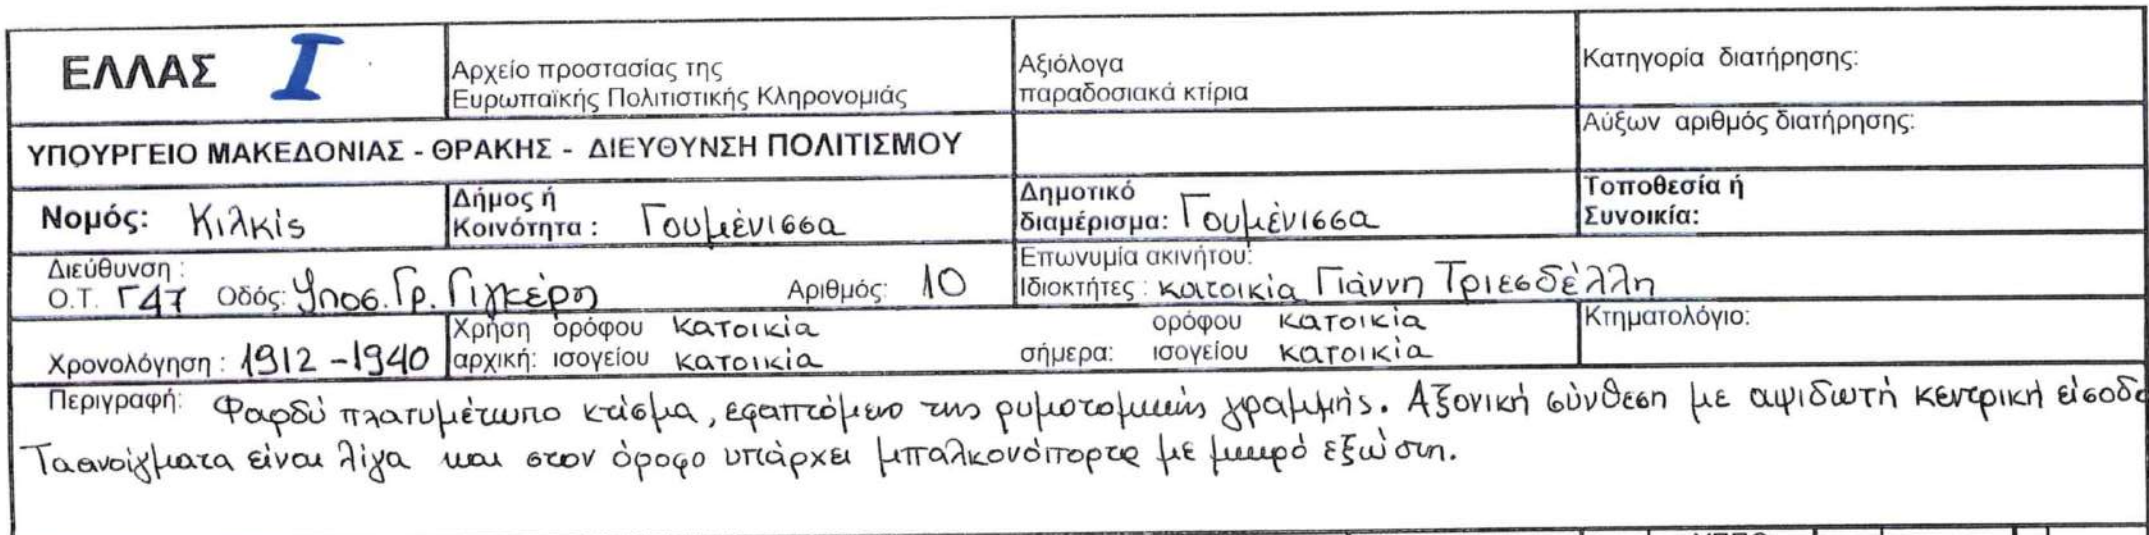 ΕΛΛΑΣ I
Αρχείο προστασίας της
Ευρωπαϊκής Πολιτιστικής Κληρονομιάς
Αξιόλογα
παραδοσιακά κτίρια
Κατηγορία διατήρησης:
ΥΠΟΥΡΓΕΙΟ ΜΑΚΕΔΟΝΙΑΣ - ΘΡΑΚΗΣ - ΔΙΕΥΘΥΝΣΗ ΠΟΛΙΤΙΣΜΟΥ
Αύξων αριθμός διατήρησης:
Νομός: Κιλκίς
Δήμος ή
Κοινότητα : Γουμένισσα
Δημοτικό
διαμέρισμα: Γουμένισσα
Τοποθεσία ή
Συνοικία:
Διεύθυνση :
Ο.Τ. Γ47 Οδός: Υποσ. Γρ. Γιγκέρη Αριθμός: 10
Επωνυμία ακινήτου:
Ιδιοκτήτες : κατοικία Γιάννη Τριεσδέλλη
Χρονολόγηση : 1912 - 1940
Χρήση ορόφου κατοικία
αρχική: ισογείου κατοικία
ορόφου κατοικία
σήμερα: ισογείου κατοικία
Κτηματολόγιο:
Περιγραφή: Φαρδύ πλατυμέτωπο κτίσμα, εφαπτόμενο της ρυμοτομικής γραμμής. Αξονική σύνθεση με αψιδωτή κεντρική είσοδο
Τα ανοίγματα είναι λίγα και στον όροφο υπάρχει μπαλκονόπορτα με μικρό εξώστη.